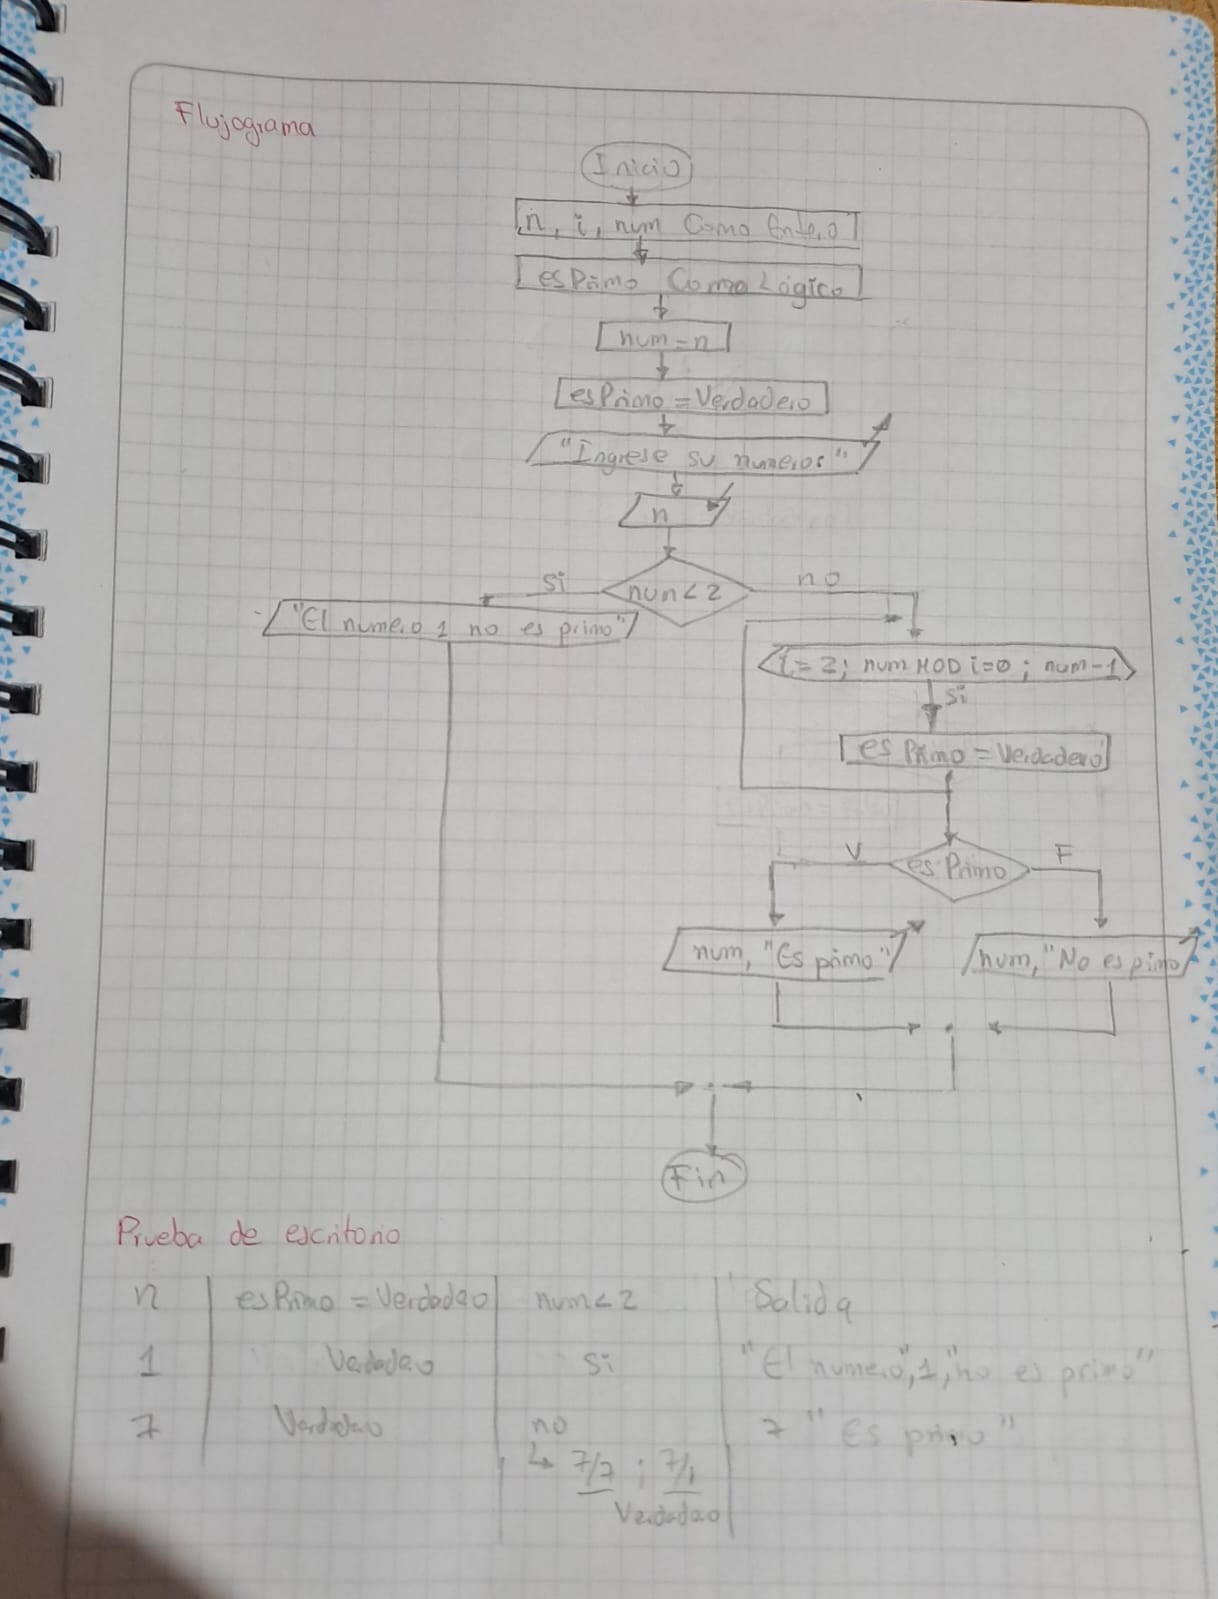 Flujograma
Inicio
n, i, num Como Entero
esPrimo Como Lógico
num = n
esPrimo = Verdadero
"Ingrese su numeros"
n
num < 2
si
no
"El numero 1 no es primo"
i = 2; num MOD i = 0; num - 1
si
es Primo = Verdadero
es Primo
V
F
num, "Es primo"
num, "No es primo
Fin
Prueba de escritorio
n esPrimo = Verdadero num < 2 Salida
1 Verdadero si "El numero", 1, "no es primo"
7 Verdadero no 7 "Es primo"
↳ 7/7 ; 7/1
Verdadero